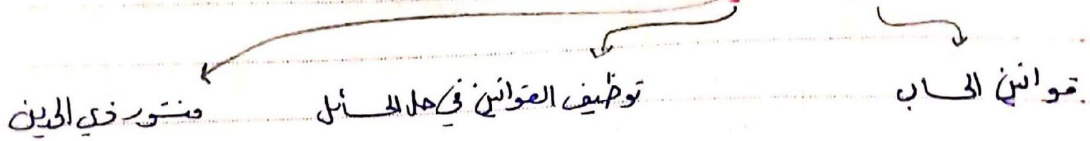 قوانين الحساب توظيف القوانين في حل المسائل منشور ذي الحدين